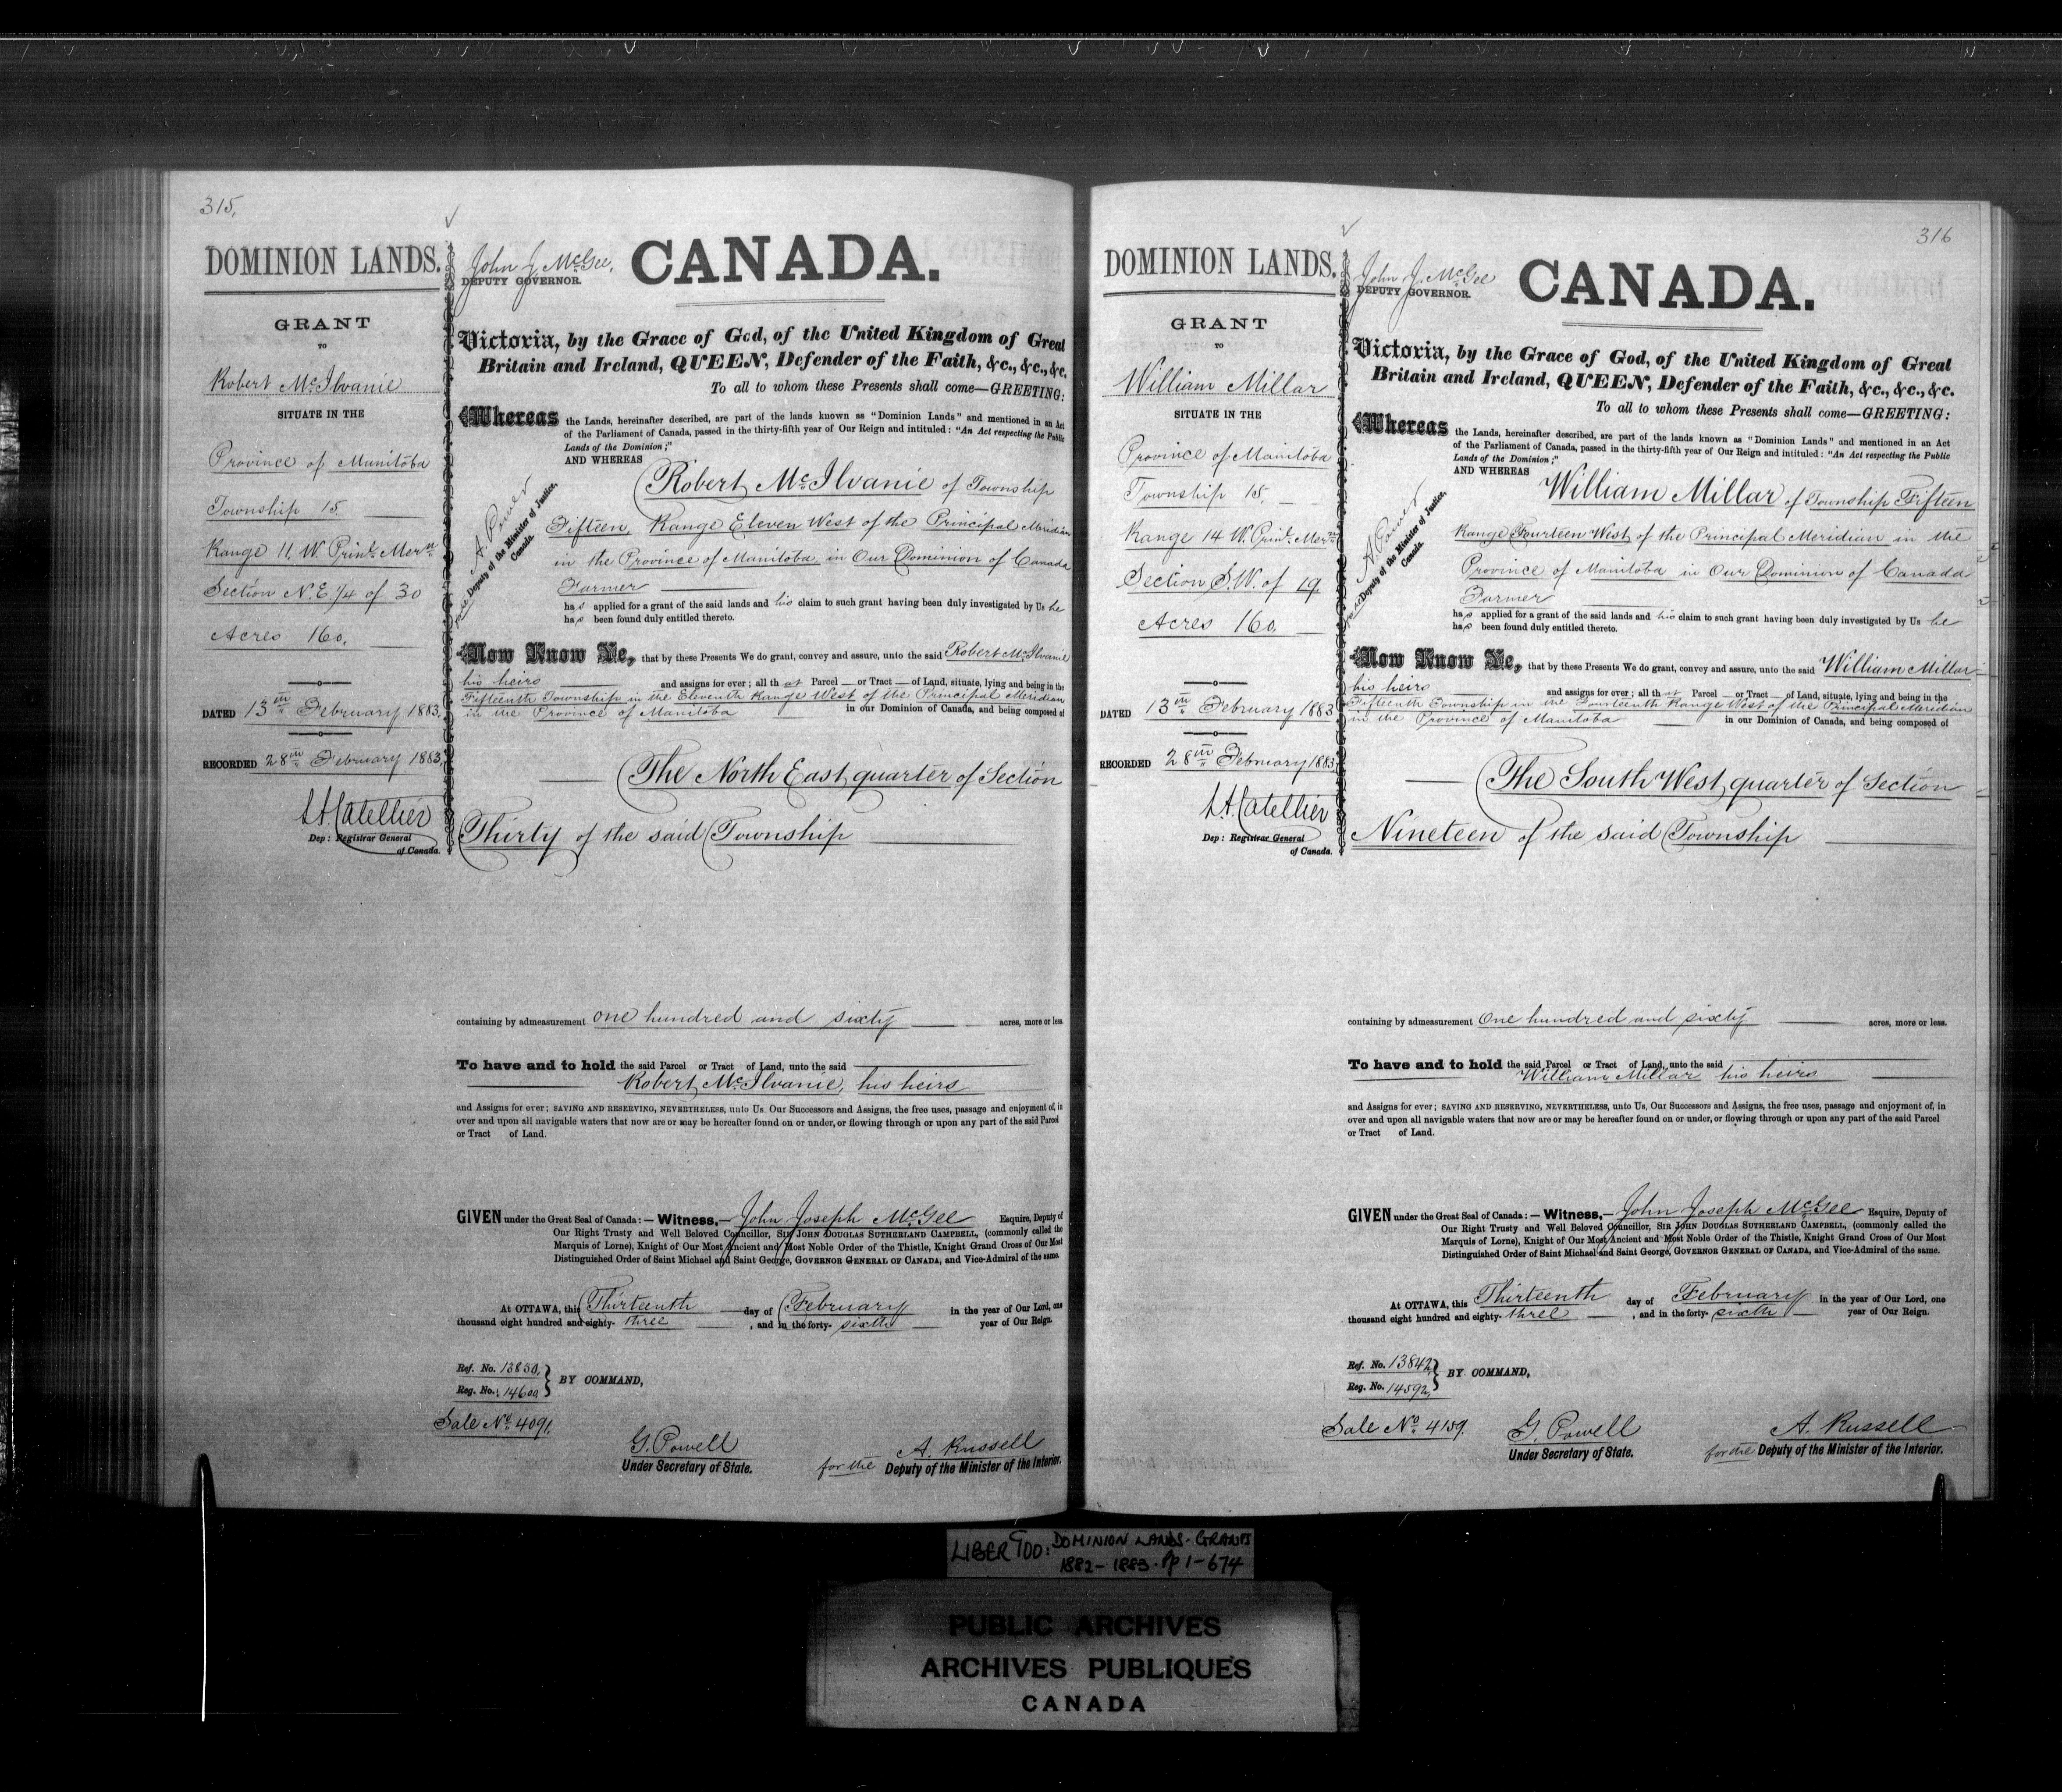 315.
DOMINION LANDS.
GRANT
TO
Robert McIlvanie
SITUATE IN THE
Province of Manitoba
Township 15.
Range 11. W. Prinl. Mern.
Section N.E. 1/4 of 30
Acres 160.
DATED 13th February 1883.
RECORDED 28th February 1883.
L.A. Catellier
Dep: Registrar General
of Canada.
John J. McGee.
DEPUTY GOVERNOR.
CANADA.
Victoria, by the Grace of God, of the United Kingdom of Great
Britain and Ireland, QUEEN, Defender of the Faith, &c., &c., &c.
To all to whom these Presents shall come—GREETING:
Whereas the Lands, hereinafter described, are part of the lands known as "Dominion Lands" and mentioned in an Act
of the Parliament of Canada, passed in the thirty-fifth year of Our Reign and intituled: "An Act respecting the Public
Lands of the Dominion;"
AND WHEREAS
Robert McIlvanie of Township
Fifteen, Range Eleven West of the Principal Meridian
in the Province of Manitoba, in Our Dominion of Canada
Farmer
A. Power
Deputy of the Minister of Justice,
Canada.
has applied for a grant of the said lands and his claim to such grant having been duly investigated by Us he
has been found duly entitled thereto.
Now Know Ye, that by these Presents We do grant, convey and assure, unto the said Robert McIlvanie
his heirs and assigns for ever; all that Parcel or Tract of Land, situate, lying and being in the
Fifteenth Township in the Eleventh Range West of the Principal Meridian
in the Province of Manitoba in our Dominion of Canada, and being composed of
The North East quarter of Section
Thirty of the said Township
containing by admeasurement one hundred and sixty acres, more or less.
To have and to hold the said Parcel or Tract of Land, unto the said
Robert McIlvanie, his heirs
and Assigns for ever; SAVING AND RESERVING, NEVERTHELESS, unto Us, Our Successors and Assigns, the free uses, passage and enjoyment of, in
over and upon all navigable waters that now are or may be hereafter found on or under, or flowing through or upon any part of the said Parcel
or Tract of Land.
GIVEN under the Great Seal of Canada:—Witness,—John Joseph McGee Esquire, Deputy of
Our Right Trusty and Well Beloved Councillor, SIR JOHN DOUGLAS SUTHERLAND CAMPBELL, (commonly called the
Marquis of Lorne), Knight of Our Most Ancient and Most Noble Order of the Thistle, Knight Grand Cross of Our Most
Distinguished Order of Saint Michael and Saint George, GOVERNOR GENERAL OF CANADA, and Vice-Admiral of the same.
At OTTAWA, this Thirteenth day of February in the year of Our Lord, one
thousand eight hundred and eighty-three, and in the forty-sixth year of Our Reign.
Ref. No. 13850.
Reg. No. 14600
BY COMMAND,
Sale No. 4091.
G. Powell
Under Secretary of State.
A. Russell
for the Deputy of the Minister of the Interior.
316
DOMINION LANDS.
GRANT
TO
William Millar
SITUATE IN THE
Province of Manitoba
Township 15.
Range 14 W. Prinl. Mern.
Section S.W. of 19.
Acres 160.
DATED 13th February 1883
RECORDED 28th February 1883.
L.A. Catellier
Dep: Registrar General
of Canada.
John J. McGee
DEPUTY GOVERNOR.
CANADA.
Victoria, by the Grace of God, of the United Kingdom of Great
Britain and Ireland, QUEEN, Defender of the Faith, &c., &c., &c.
To all to whom these Presents shall come—GREETING:
Whereas the Lands, hereinafter described, are part of the lands known as "Dominion Lands" and mentioned in an Act
of the Parliament of Canada, passed in the thirty-fifth year of Our Reign and intituled: "An Act respecting the Public
Lands of the Dominion;"
AND WHEREAS
William Millar of Township Fifteen
Range Fourteen West of the Principal Meridian in the
Province of Manitoba in Our Dominion of Canada
Farmer
A. Power
Deputy of the Minister of Justice,
Canada.
has applied for a grant of the said lands and his claim to such grant having been duly investigated by Us he
has been found duly entitled thereto.
Now Know Ye, that by these Presents We do grant, convey and assure, unto the said William Millar
his heirs and assigns for ever; all that Parcel or Tract of Land, situate, lying and being in the
Fifteenth Township in the Fourteenth Range West of the Principal Meridian
in the Province of Manitoba in our Dominion of Canada, and being composed of
The South West quarter of Section
Nineteen of the said Township
containing by admeasurement One hundred and sixty acres, more or less.
To have and to hold the said Parcel or Tract of Land, unto the said
William Millar his heirs
and Assigns for ever; SAVING AND RESERVING, NEVERTHELESS, unto Us, Our Successors and Assigns, the free uses, passage and enjoyment of, in
over and upon all navigable waters that now are or may be hereafter found on or under, or flowing through or upon any part of the said Parcel
or Tract of Land.
GIVEN under the Great Seal of Canada:—Witness,—John Joseph McGee Esquire, Deputy of
Our Right Trusty and Well Beloved Councillor, SIR JOHN DOUGLAS SUTHERLAND CAMPBELL, (commonly called the
Marquis of Lorne), Knight of Our Most Ancient and Most Noble Order of the Thistle, Knight Grand Cross of Our Most
Distinguished Order of Saint Michael and Saint George, GOVERNOR GENERAL OF CANADA, and Vice-Admiral of the same.
At OTTAWA, this Thirteenth day of February in the year of Our Lord, one
thousand eight hundred and eighty-three, and in the forty-sixth year of Our Reign.
Ref. No. 13842
Reg. No. 14592
BY COMMAND,
Sale No. 4159.
G. Powell
Under Secretary of State.
A. Russell
for the Deputy of the Minister of the Interior.
DOMINION LANDS. GRANTS
1882-1883. Pp 1-674
PUBLIC ARCHIVES
ARCHIVES PUBLIQUES
CANADA